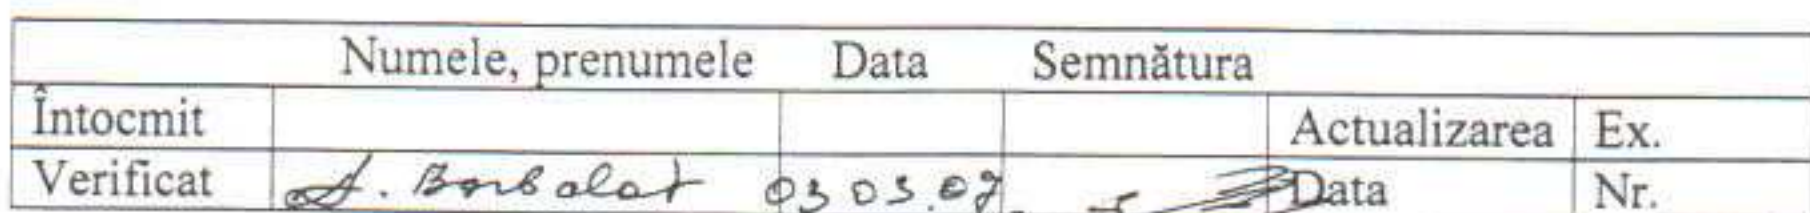 Numele, prenumele Data Semnătura
Întocmit Actualizarea Ex.
Verificat A. Barbalat 03 03.07 Data Nr.